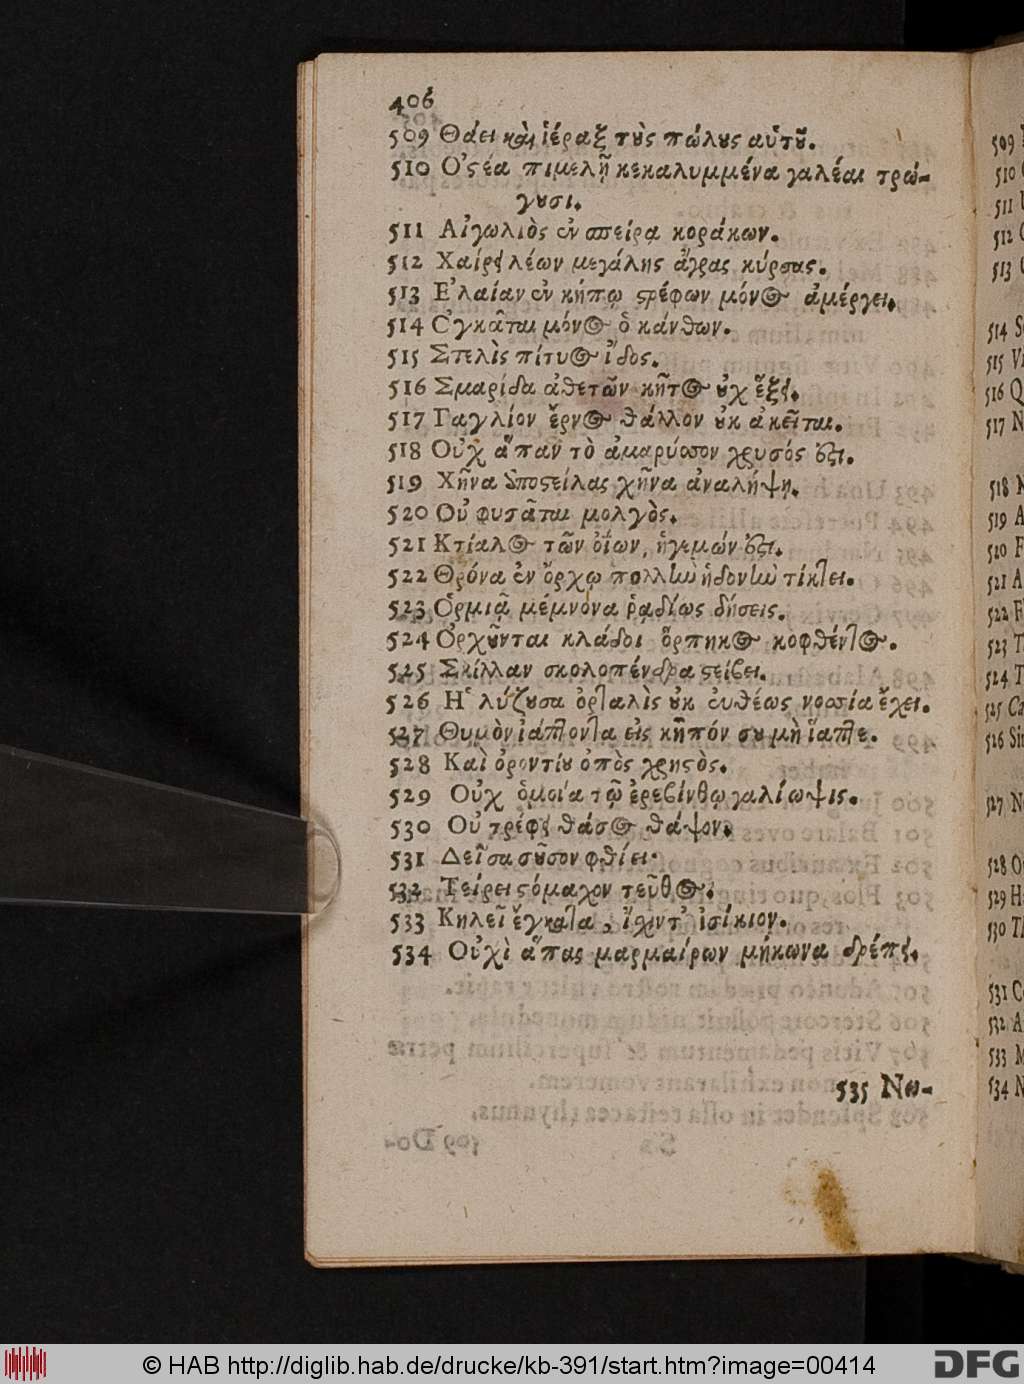 406
509 Θάει καὶ ἱέραξ τοὺς πώλους αὑτοῦ.
510 Ὀστέα πιμελῇ κεκαλυμμένα γαλέαι τρώ-
γουσι.
511 Αἰγωλιὸς ἐν σπείρᾳ κοράκων.
512 Χαίρει λέων μεγάλης ἄγρας κύρσας.
513 Ἐλαίαν ἐν κήπῳ στρέφων μόνος ἀμέργει.
514 Ὀγκᾶται μόνος ὁ κάνθων.
515 Σπελὶς πίτυος ἶδος.
516 Σμαρίδα ἀθετῶν κῆτος οὐχ ἕξει.
517 Γαγλίον ἔρνος θάλλον οὐκ ἀκεῖται.
518 Οὐχ ἅπαν τὸ ἀμαρύσσον χρυσός ἐστι.
519 Χῆνα ἀποστείλας χῆνα ἀναλήψῃ.
520 Οὐ φυσᾶται μολγὸς.
521 Κτίαλος τῶν ὀΐων, ἡγεμών ἐστι.
522 Θρόνα ἐν ὄρχῳ πολλὴν ἡδονὴν τίκτει.
523 Ὁρμιᾷ μέμνονα ῥαδίως δήσεις.
524 Ὀρχοῦνται κλάδοι ὅρπηκος κοφθέντος.
525 Σκίλλαν σκολοπένδρα στείβει.
526 Ἡ λύζουσα ὀρταλὶς οὐκ εὐθέως νοσσία ἔχει.
527 Θυμὸν ἰάπτοντα εἰς κῆπόν σου μὴ ἵαπτε.
528 Καὶ ὀροντίου ὀπὸς χρηστὸς.
529 Οὐχ ὁμοία τῷ ἐρεβίνθῳ γαλίωψις.
530 Οὐ τρέφει θάσος θάψον.
531 Δεῖσα σῦσον φθίει·
532 Τείρει στόμαχον τεῦθος.
533 Κηλεῖ ἔγκατα, ἴχιντ' ἰσίκιον.
534 Οὐχὶ ἅπας μαρμαίρων μήκωνα δρέπει.
535 Νω-
509
510
511
512
513
514
515
516
517
518
519
520
521
522
523
524
525
526
527
528
529
530
531
532
533
534
© HAB http://diglib.hab.de/drucke/kb-391/start.htm?image=00414
DFG